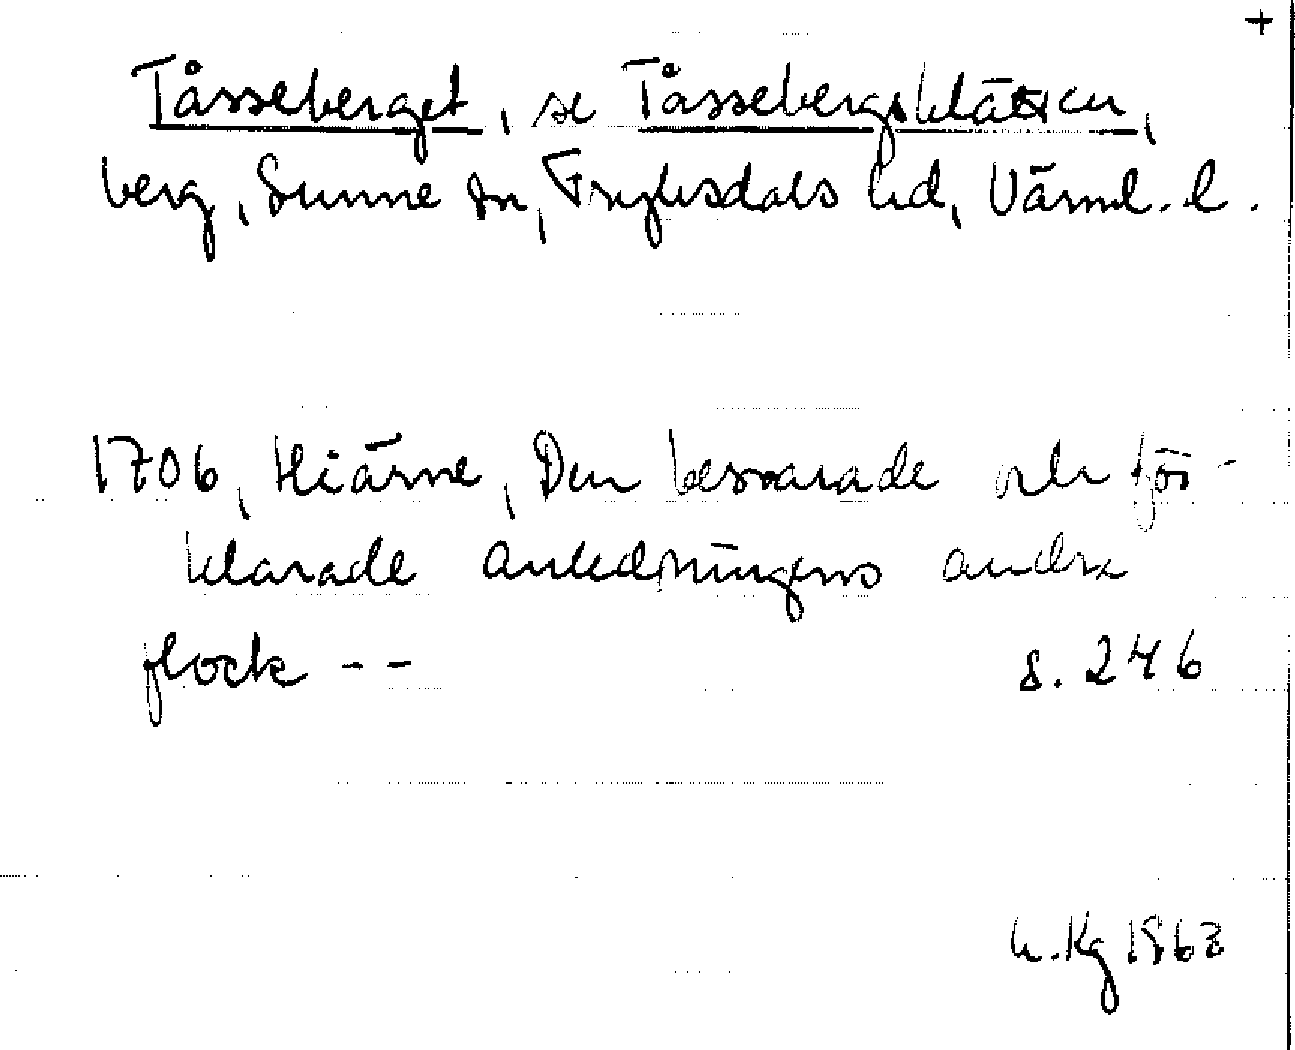 +
Tåsseberget, se Tåssebergsklätten,
berg, Sunne sn, Fryksdals hd, Värml. l.
1706, Hiärne, Den besvarade och för-
klarade anledningens andra
flock -- s. 246
h. Kg 1963